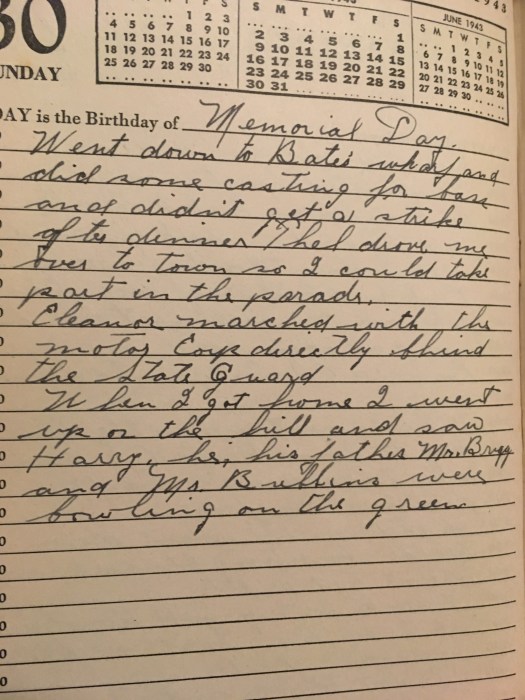 30
S
1943
1 2 3
4 5 6 7 8 9 10
11 12 13 14 15 16 17
18 19 20 21 22 23 24
25 26 27 28 29 30
S M T W T F S
1
2 3 4 5 6 7 8
9 10 11 12 13 14 15
16 17 18 19 20 21 22
23 24 25 26 27 28 29
30 31
JUNE 1943
S M T W T F S
1 2 3 4 5
6 7 8 9 10 11 12
13 14 15 16 17 18 19
20 21 22 23 24 25 26
27 28 29 30
UNDAY
DAY is the Birthday of Memorial Day.
Went down to Bates wharf and
did some casting for bass
and didn't get a strike
after dinner Thel drove me
over to Town so I could take
part in the parade.
Eleanor marched with the
motor Corps directly behind
the State Guard
When I got home I went
up on the hill and saw
Harry, he, his father Mr. Brigg
and Mr. Bullins were
bowling on the green